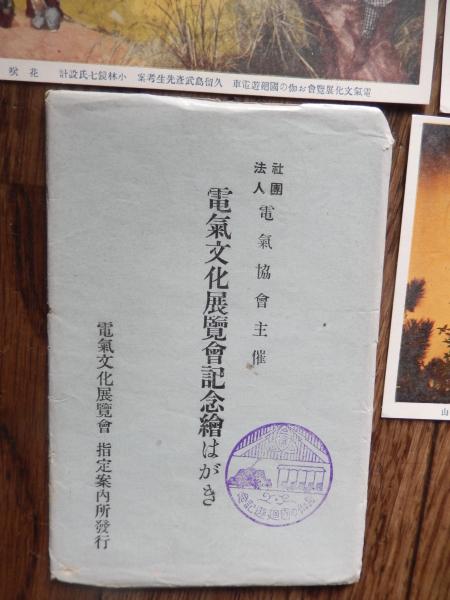 電氣文化展覽會お伽の國廻遊電車 久留島武彦先生考案 小林鏡七氏設計 花咲
社團法人 電氣協會主催
電氣文化展覽會記念繪はがき
電氣文化展覽會 指定案内所發行
山